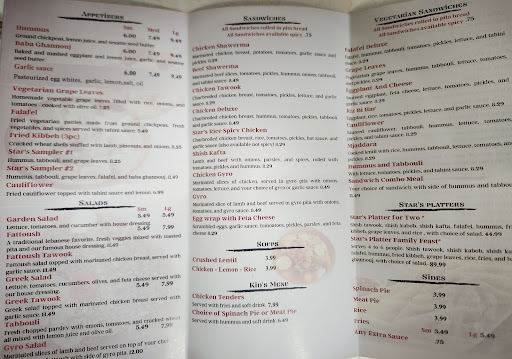 Appetizers
Sm Med Lg
Hummus 6.00 7.49 9.49
Ground chickpeas, lemon juice, and sesame seed butter.
Baba Ghannouj 6.00 7.49 9.49
Baked and mashed eggplant and lemon juice, garlic, and sesame
seed butter.
Garlic sauce 6.00 7.49 9.49
Pasteurized egg whites, garlic, lemon, salt, oil
Vegetarian Grape Leaves
Homemade vegetable grape leaves filled with rice, onions, and
tomatoes - cooked with olive oil. 7.25
Falafel
Fried vegetarian patties made from ground chickpeas, fresh
vegetables, and spices served with tahini sauce. 5.49
Fried Kibbeh (3pc)
Cracked wheat shells stuffed with lamb, pinenuts, and onions. 5.55
Star's Sampler #1
Hummus, tabbouli, and grape leaves. 8.25
Star's Sampler #2
Hummus, tabbouli, grape leaves, falafel, and baba ghannouj. 11.49
Cauliflower
Fried cauliflower topped with tahini sauce and lemon. 6.99
Salads
Sm Lg
Garden Salad 5.49 5.49
Lettuce, tomatoes, and cucumber with house dressing.
Fattoush 5.49 7.99
A traditional lebanese favorite, fresh veggies mixed with toasted
pita and our famous house dressing.
Fattoush Tawook
Fattoush salad topped with marinated chicken breast, served with
garlic sauce. 11.49
Greek Salad 5.49 7.99
Lettuce, tomatoes, cucumbers, olives, and feta cheese served with
our house dressing.
Greek Tawook
Greek salad topped with marinated chicken breast served with
garlic sauce. 11.49
Tabbouli 5.49 7.99
Fresh chopped parsley with onions, tomatoes, and cracked wheat
all mixed with lemon juice and olive oil.
Gyro Salad
Marinated slices of lamb and beef served on top of your choice
salad with side of gyro pita. 12.00
Sandwiches
All Sandwiches rolled in pita bread
All Sandwiches available spicy .75
Chicken Shawarma
Marinated chicken breast, potatoes, tomatoes, garlic sauce and
pickles. 5.99
Beef Shawarma
Marinated beef slices, tomatoes, pickles, hummus, onions, tabbouli,
and tahini sauce.
Chicken Tawook
Charbroiled chicken breast, tomatoes, pickles, lettuce, and garlic
sauce.
Chicken Deluxe
Charbroiled chicken breast, hummus, tomatoes, pickles, tabbouli
and garlic sauce.
Star's Hot Spicy Chicken
Charbroiled chicken breast, rice, tomatoes, pickles, hot sauce, and
garlic sauce (also available not spicy)
Shish Kafta
Lamb and beef with onions, parsley, and spices, rolled with
tomatoes, pickles and hummus.
Chicken Gyro
Marinated slices of chicken, served in gyro pita with onions,
tomatoes, lettuce and your choice of gyro or garlic sauce.
Gyro
Marinated slice of lamb and beef served in gyro pita with onions,
tomatoes, and gyro sauce.
Egg wrap with Feta Cheese
Scrambled eggs, garlic sauce, tomatoes, pickles, parsley, and feta
cheese
Soups
Crushed Lentil 3.99
Chicken - Lemon - Rice 3.99
Kid's Menu
Chicken Tenders
Served with fries and soft drink.
Choice of Spinach Pie or Meat Pie
Served with hummus and soft drink.
Vegetarian Sandwiches
All Sandwiches rolled in pita bread
All Sandwiches available spicy .75
Falafel Deluxe
Falafel, hummus, tabbouli, tomatoes, pickles, lettuce, and tahini
sauce.
Grape Leaves
Vegetarian grape leaves, hummus, tabbouli, lettuce, tomatoes,
and pickles.
Eggplant And Cheese
Sauteed eggplant, feta cheese, lettuce, tomatoes, pickles, and
garlic sauce.
Eggplant, rice, tomatoes, pickles, lettuce, and garlic sauce.
Cauliflower
Sauteed cauliflower, tabbouli, hummus, lettuce, tomatoes,
pickles, and tahini sauce.
Mjaddara
Cracked lentil with rice, hummus, tabbouli, lettuce, tomatoes, and
pickles.
Hummus and Tabbouli
With lettuce, tomatoes, pickles, and tahini sauce.
Sandwich Combo Meal
Your choice of sandwich with side of hummus and tabbouli
Star's platters
Star's Platter for Two *
Shish tawook, shish kabob, shish kafta, falafel, hummus, fried
kibbeh, grape leaves, and rice, with choice of salad. 44.99
Star's Platter Family Feast*
Serves 4 to 6 people. Shish tawook, shish kabob, shish kafta,
falafel, hummus, fried kibbeh, grape leaves, rice, fries, and baba
ghannouj, with choice of salad.
Sides
Spinach Pie 3.99
Meat Pie 3.99
Rice 3.99
Fries Sm 5.49 Lg 5.49
Any Extra Sauce .75